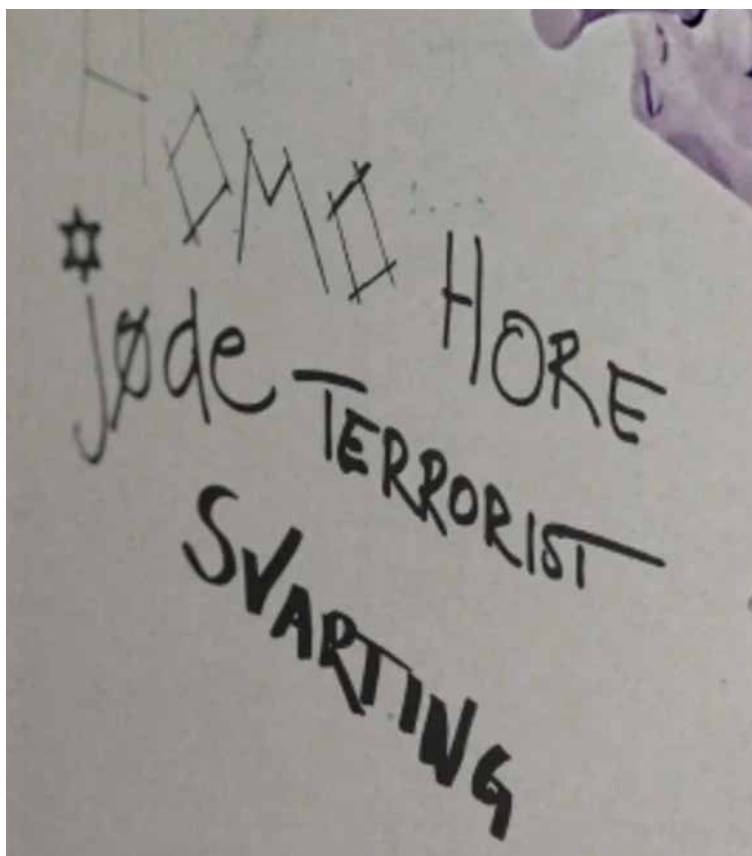 HOMO
HORE
jøde
TERRORIST
SVARTING